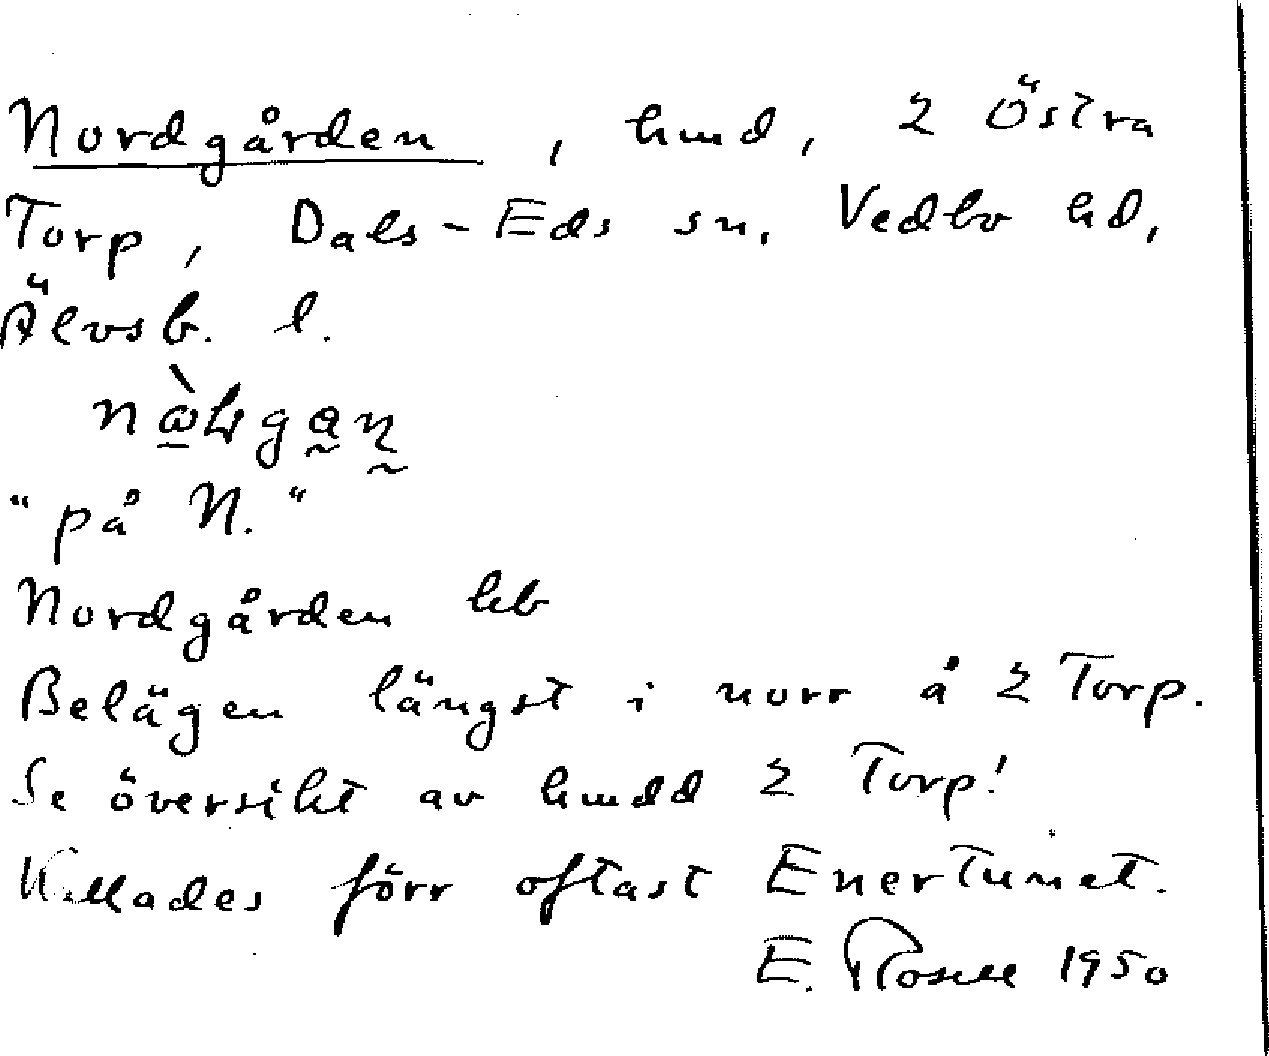 Nordgården, hmd, 2 Östra
Torp, Dals-Eds sn, Vedbo hd,
Älvsb. l.
"på N."
Nordgården kb
Belägen längst i norr å 2 Torp.
Se översikt av hmdd 2 Torp!
Kallades förr oftast Enertunet.
E. Rosell 1950